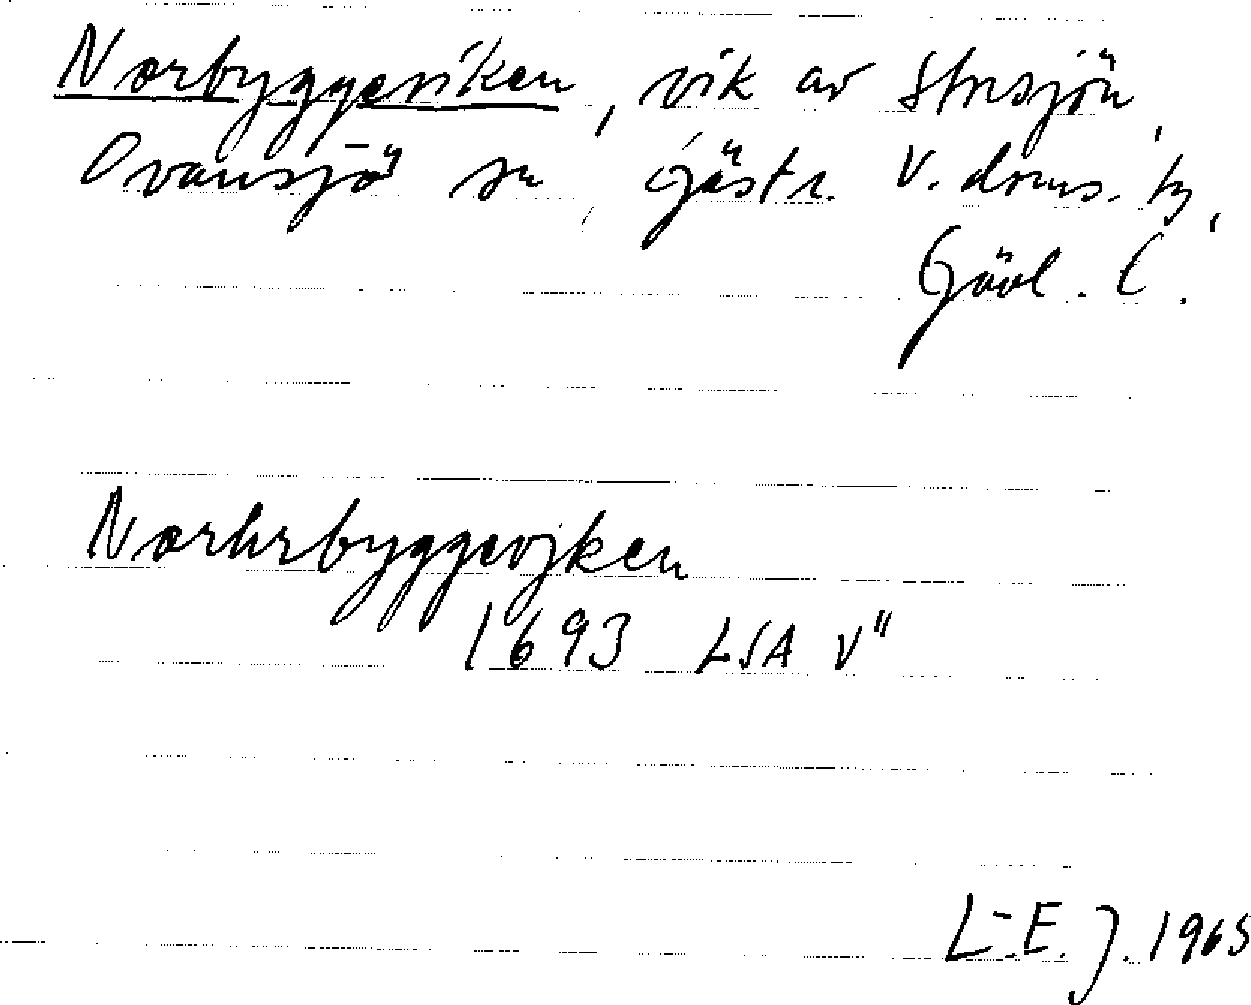 Norbyggeviken, vik av Storsjön,
Ovansjö sn, Gästr. V. doms. tg,
Gävl. l.
Norhrbyggevjken
1693 LSA V"
L-E. J. 1965